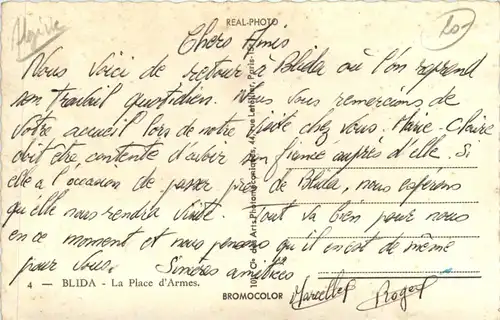 Algérie
REAL-PHOTO
20-
Chers Amis
Nous voici de retour à Blida où l'on reprend
son travail quotidien. Nous vous remercions de
votre accueil lors de notre visite chez vous. Marie-Claire
doit être contente d'avoir son fiancé auprès d'elle. Si
elle a l'occasion de passer près de Blida, nous espérons
qu'elle nous rendra visite. Tout va bien pour nous
en ce moment et nous pensons qu'il en est de même
pour vous. Sincères amitiés
4 — BLIDA - La Place d'Armes.
BROMOCOLOR
Marcelle
Roger
Arts Photomécaniques, rue Letellier, Paris-15e